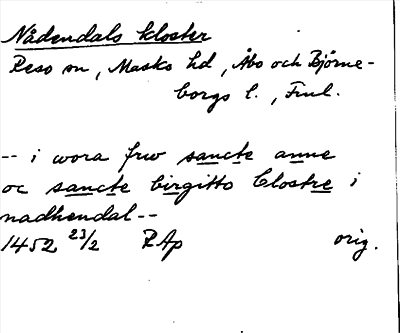 Nådendals kloster
Reso sn, Masko hd, Åbo och Björne-
borgs l., Finl.
-- i wora frw sancte anne
oc sancte birgitto closstre i
nadhendal --
1452 23/2 RAp orig.